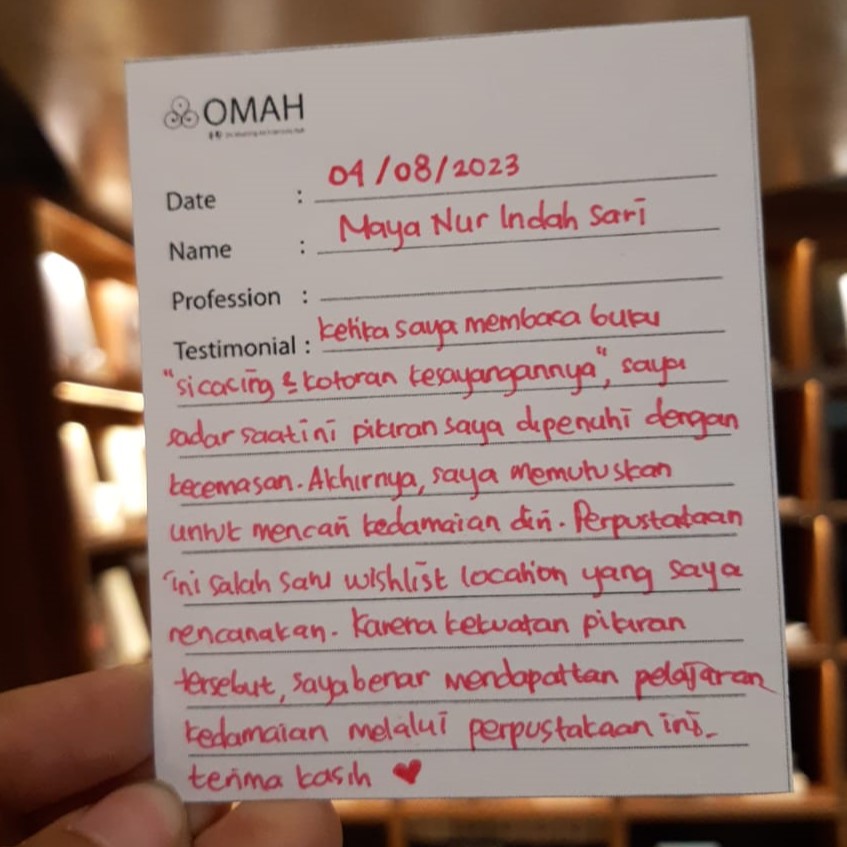 OMAH
Date : 04/08/2023
Name : Maya Nur Indah Sari
Profession :
Testimonial : ketika saya membaca buku
"si cacing & kotoran kesayangannya", saya
sadar saat ini pikiran saya dipenuhi dengan
kecemasan. Akhirnya, saya memutuskan
untuk mencari kedamaian diri. Perpustakaan
ini salah satu wishlist location yang saya
rencanakan. Karena kekuatan pikiran
tersebut, saya benar mendapatkan pelajaran
kedamaian melalui perpustakaan ini.
terima kasih ♥